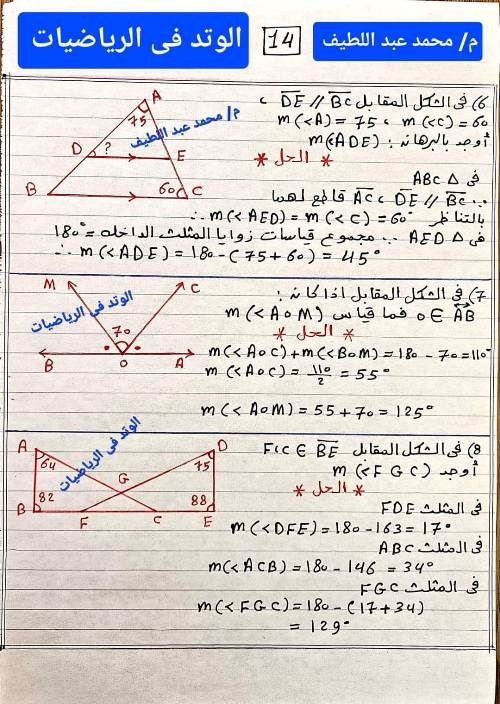 الوتد فى الرياضيات
14
م/ محمد عبد اللطيف
6) فى الشكل المقابل DE // BC ،
m(<A) = 75 ، m(<C) = 60
أوجد بالبرهان: m(<ADE)
* الحل *
فى △ ABC
∵ DE // BC ، AC قاطع لهما
∴ m(<AED) = m(<C) = 60° بالتناظر
فى △ AED ∵ مجموع قياسات زوايا المثلث الداخله = 180°
∴ m(<ADE) = 180 - (75 + 60) = 45°
A
75
م/ محمد عبد اللطيف
D
?
E
B
60
C
7) فى الشكل المقابل اذا كان:
O ∈ AB فما قياس m(<AOM)
* الحل *
m(<AOC) + m(<BOM) = 180 - 70 = 110°
m(<AOC) = 110/2 = 55°
m(<AOM) = 55 + 70 = 125°
M
C
الوتد فى الرياضيات
70
B
O
A
8) فى الشكل المقابل F،C ∈ BE
أوجد m(<FGC)
* الحل *
فى المثلث FDE
m(<DFE) = 180 - 163 = 17°
فى المثلث ABC
m(<ACB) = 180 - 146 = 34°
فى المثلث FGC
m(<FGC) = 180 - (17 + 34)
= 129°
الوتد فى الرياضيات
A
64
D
75
G
82
88
B
F
C
E